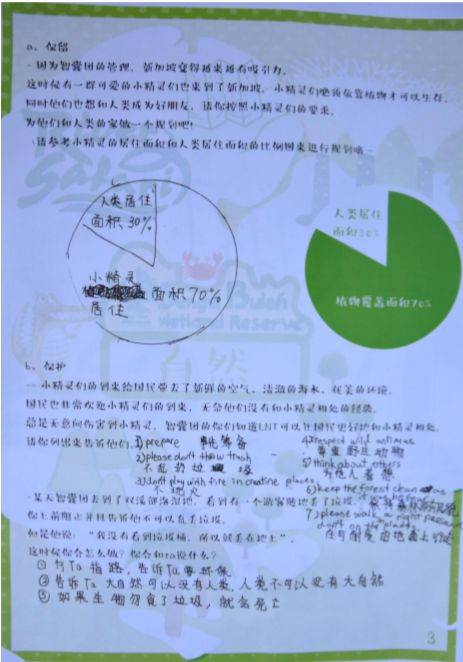 a、保留
- 因为智囊团的管理，新加坡变得越来越有吸引力。
这时候有一群可爱的小精灵们也来到了新加坡，小精灵们必须依靠植物才可以生存。
同时他们也想和人类成为好朋友，请你按照小精灵们的要求，
为他们和人类的家做一个规划吧！
（请参考小精灵的居住面积和人类居住面积的比例图来进行规划哦～
人类居住
面积 30%
小精灵
面积70%
居住
人类居住
面积30%
植物覆盖面积70%
Buloh
Wetland Reserve
自然
b、保护
- 小精灵们的到来给国民带去了新鲜的空气、清澈的海水、优美的环境。
国民也非常欢迎小精灵们的到来，无奈他们没有和小精灵相处的经验，
总是无意间伤害到小精灵，智囊团的你们知道LNT可以让国民更好地和小精灵相处，
请你列出来告诉他们
1) prepare 准备
2) please don't throw trash
不乱扔垃圾
3) don't play with fire in places
不玩火
4) respect wild animals
尊重野生动物
5) think about others
为他人着想
6) keep the forest clean as
7) please walk a
don't on the plants
- 某天智囊团去到了双溪部落湿地，看到有一个游客随地丢了垃圾，
你上前阻止并且告诉他不可以乱丢垃圾，
但是他说：“我没有看到垃圾桶，所以就丢在地上”，
这时候你会怎么做？你会和ta说什么？
① 为Ta指路，告诉Ta要环保
② 告诉Ta大自然可以没有人类，人类不可以没有大自然
③ 如果生物勿食了垃圾，就会死亡
3